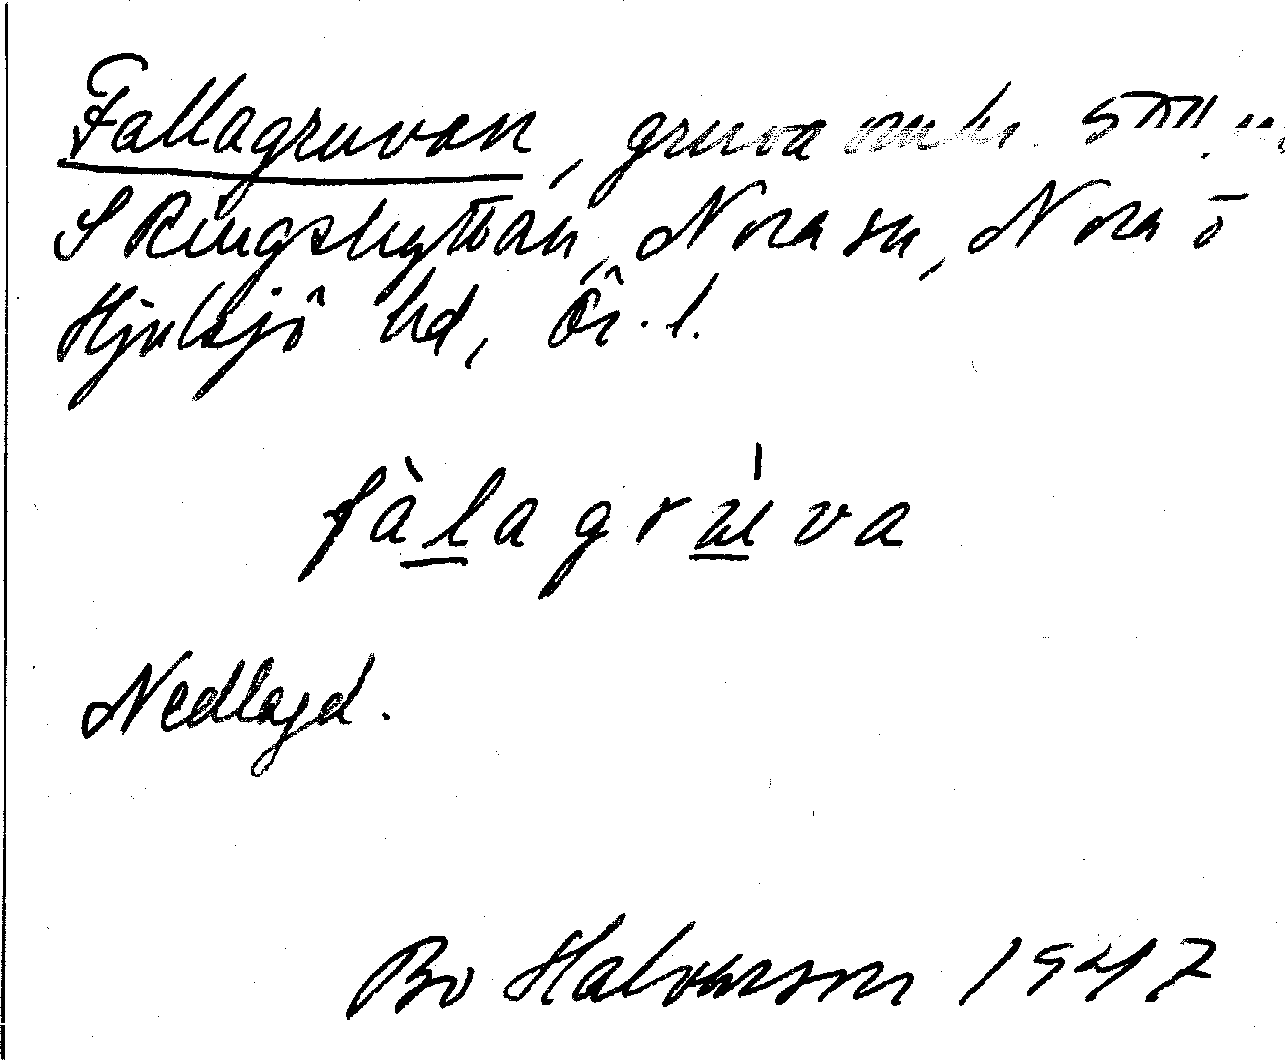 Fallagruvan, gruva
S Ringshyttan, Nora sn, Nora o
Hjulsjö hd, Ör. l.
fàlagrúva
Nedlagd.
Bo Halvarson 1947